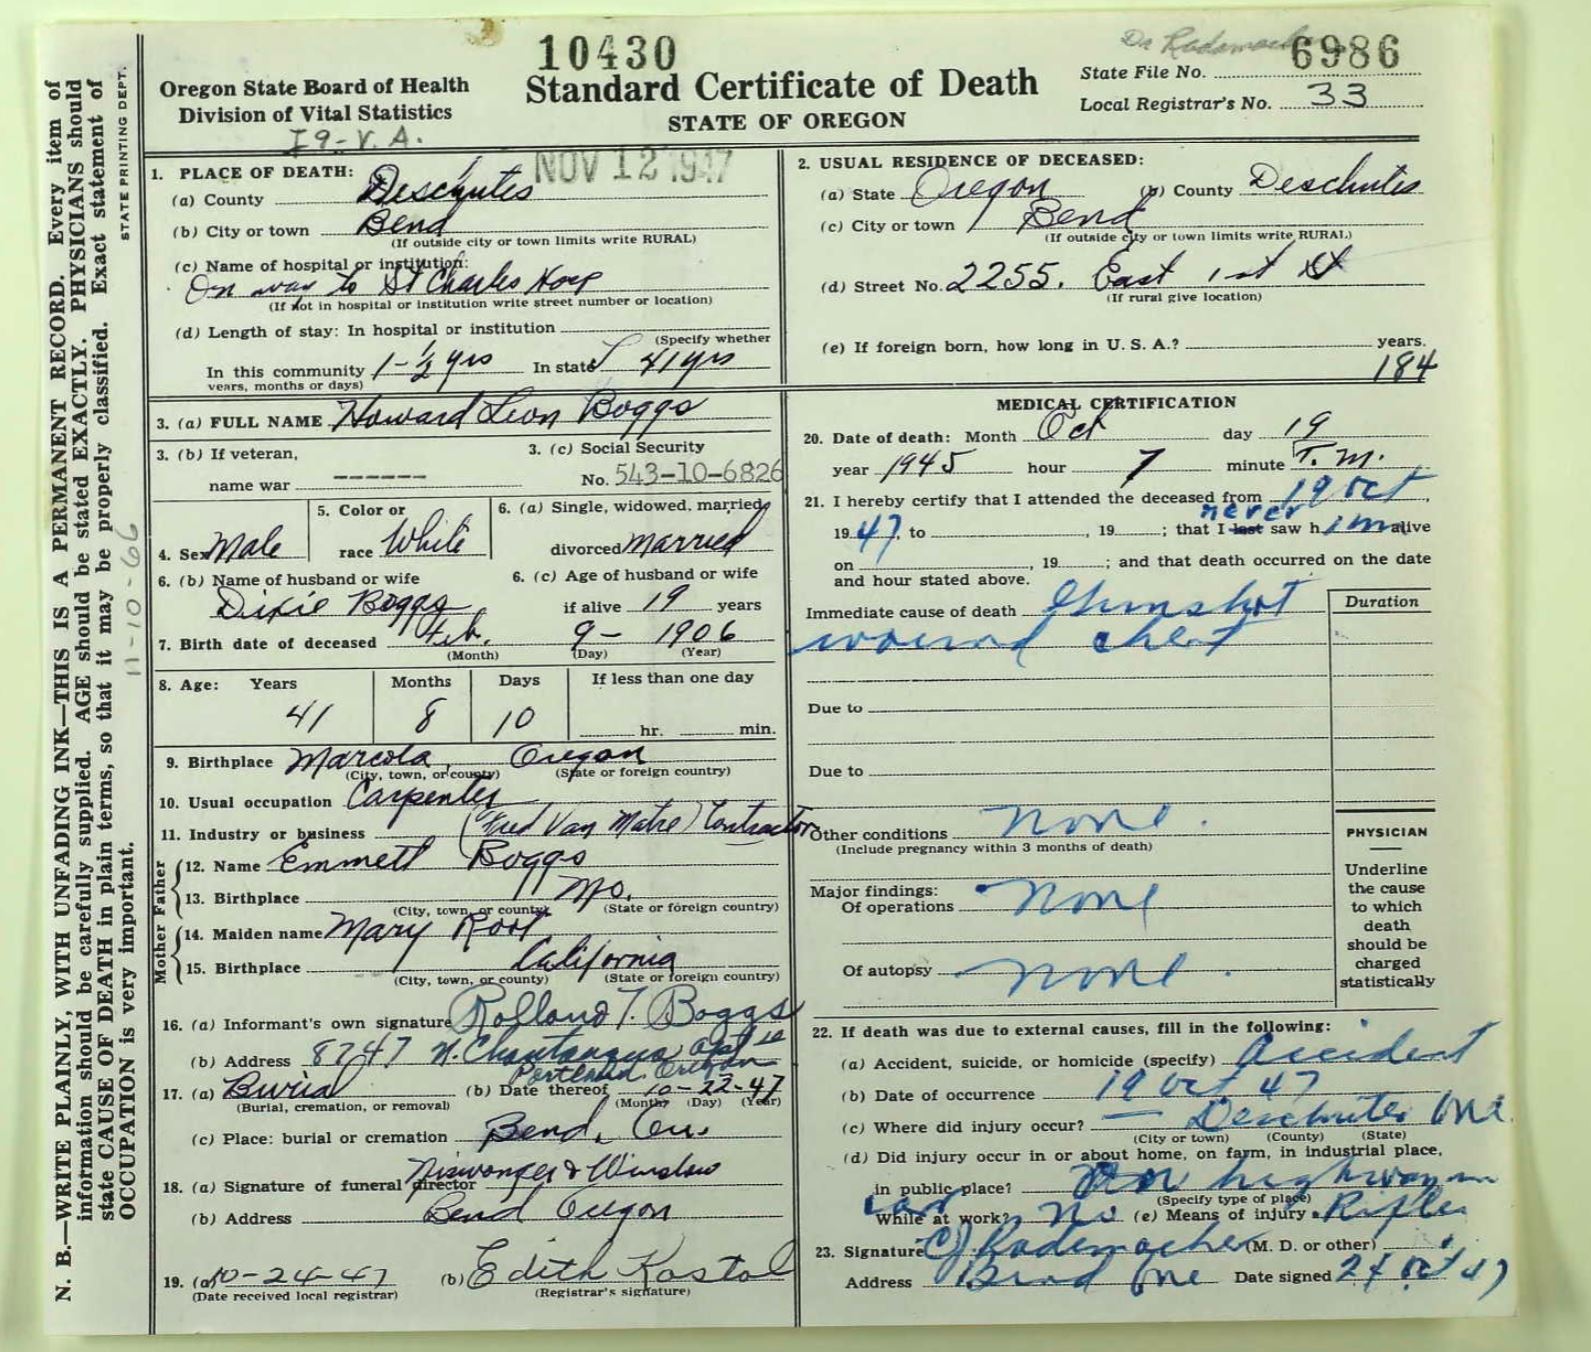 10430
Dr Rademacher 6986
Oregon State Board of Health
Division of Vital Statistics
I9-V.A.
Standard Certificate of Death
STATE OF OREGON
State File No.
Local Registrar's No. 33
NOV 12 1947
N. B.—WRITE PLAINLY, WITH UNFADING INK—THIS IS A PERMANENT RECORD. Every item of
information should be carefully supplied. AGE should be stated EXACTLY. PHYSICIANS should
state CAUSE OF DEATH in plain terms, so that it may be properly classified. Exact statement of
OCCUPATION is very important.
STATE PRINTING DEPT.
11-10-66
1. PLACE OF DEATH:
(a) County Deschutes
(b) City or town Bend
(If outside city or town limits write RURAL)
(c) Name of hospital or institution:
On way to St Charles Hosp
(If not in hospital or institution write street number or location)
(d) Length of stay: In hospital or institution
(Specify whether
In this community 1-½ yrs In state 41 yrs
years, months or days)
2. USUAL RESIDENCE OF DECEASED:
(a) State Oregon (b) County Deschutes
(c) City or town Bend
(If outside city or town limits write RURAL)
(d) Street No. 2255. East 1st St
(If rural give location)
(e) If foreign born, how long in U. S. A.? years.
184
3. (a) FULL NAME Howard Leon Boggs
3. (b) If veteran,
name war ------
3. (c) Social Security
No. 543-10-6826
4. Sex Male
5. Color or
race White
6. (a) Single, widowed, married,
divorced Married
6. (b) Name of husband or wife
Dixie Boggs
6. (c) Age of husband or wife
if alive 19 years
7. Birth date of deceased Feb. 9- 1906
(Month) (Day) (Year)
8. Age: Years Months Days If less than one day
41 8 10 hr. min.
9. Birthplace Marcola, Oregon
(City, town, or county) (State or foreign country)
10. Usual occupation Carpenter
11. Industry or business (Fred Van Matre) Contractor
Mother Father
12. Name Emmett Boggs
13. Birthplace Mo.
(City, town, or county) (State or foreign country)
14. Maiden name Mary Root
15. Birthplace California
(City, town, or county) (State or foreign country)
16. (a) Informant's own signature Rolland T. Boggs
(b) Address 8747 N. Chautauqua apt 1e
Portland. Oregon
17. (a) Burial (b) Date thereof 10-22-47
(Burial, cremation, or removal) (Month) (Day) (Year)
(c) Place: burial or cremation Bend, Ore.
18. (a) Signature of funeral director Niswonger & Winslow
(b) Address Bend Oregon
19. (a) 10-24-47 (b) Edith Kostol
(Date received local registrar) (Registrar's signature)
MEDICAL CERTIFICATION
20. Date of death: Month Oct day 19
year 1945 hour 7 minute P.M.
21. I hereby certify that I attended the deceased from 19 Oct,
never
1947, to , 19 ; that I last saw him alive
on , 19 ; and that death occurred on the date
and hour stated above.
Immediate cause of death Gunshot
wound chest
Duration
Due to
Due to
Other conditions none.
(Include pregnancy within 3 months of death)
Major findings:
Of operations none
Of autopsy none.
PHYSICIAN
Underline
the cause
to which
death
should be
charged
statistically
22. If death was due to external causes, fill in the following:
(a) Accident, suicide, or homicide (specify) Accident
(b) Date of occurrence 19 Oct 47
(c) Where did injury occur? — Deschutes Ore.
(City or town) (County) (State)
(d) Did injury occur in or about home, on farm, in industrial place,
in public place? on highway in
(Specify type of place)
car
While at work? No (e) Means of injury Rifle
23. Signature CJ Rademacher (M. D. or other)
Address Bend Ore Date signed 24 Oct 47